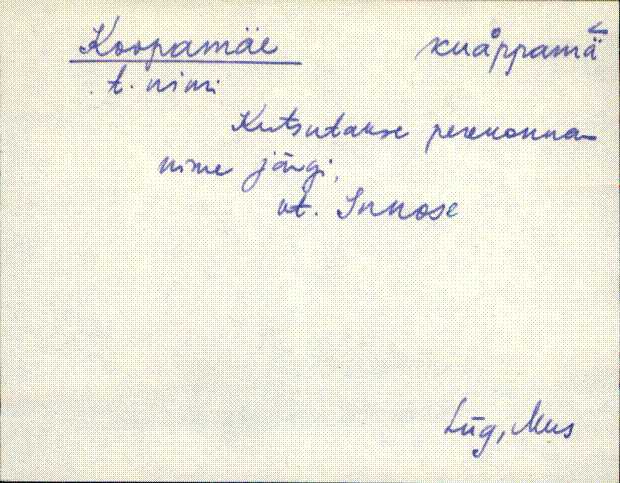 Koopamäe kuåppamä̆
t. nimi
Kutsutakse perekonna-
nime järgi,
vt. Innose
Lüg, Mus